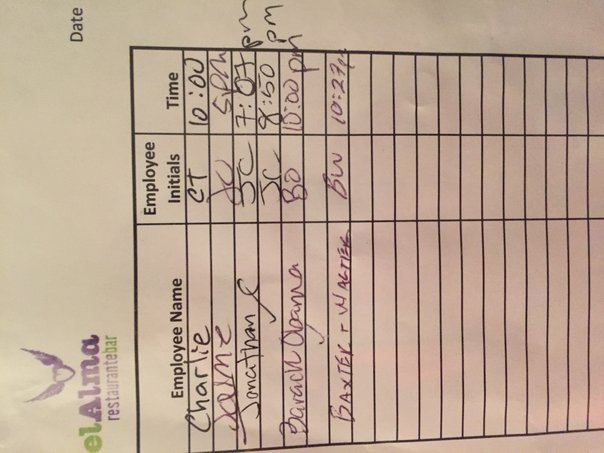 elAlma
restaurantebar
Date
Employee Name Employee Initials Time
Charlie CT 10:00
Jaime 5pm
Jonathan C JC 7:07pm
JC 8:50 pm
Barack Obama BO 10:00pm
BAXTER + WAGTER BW 10:27p